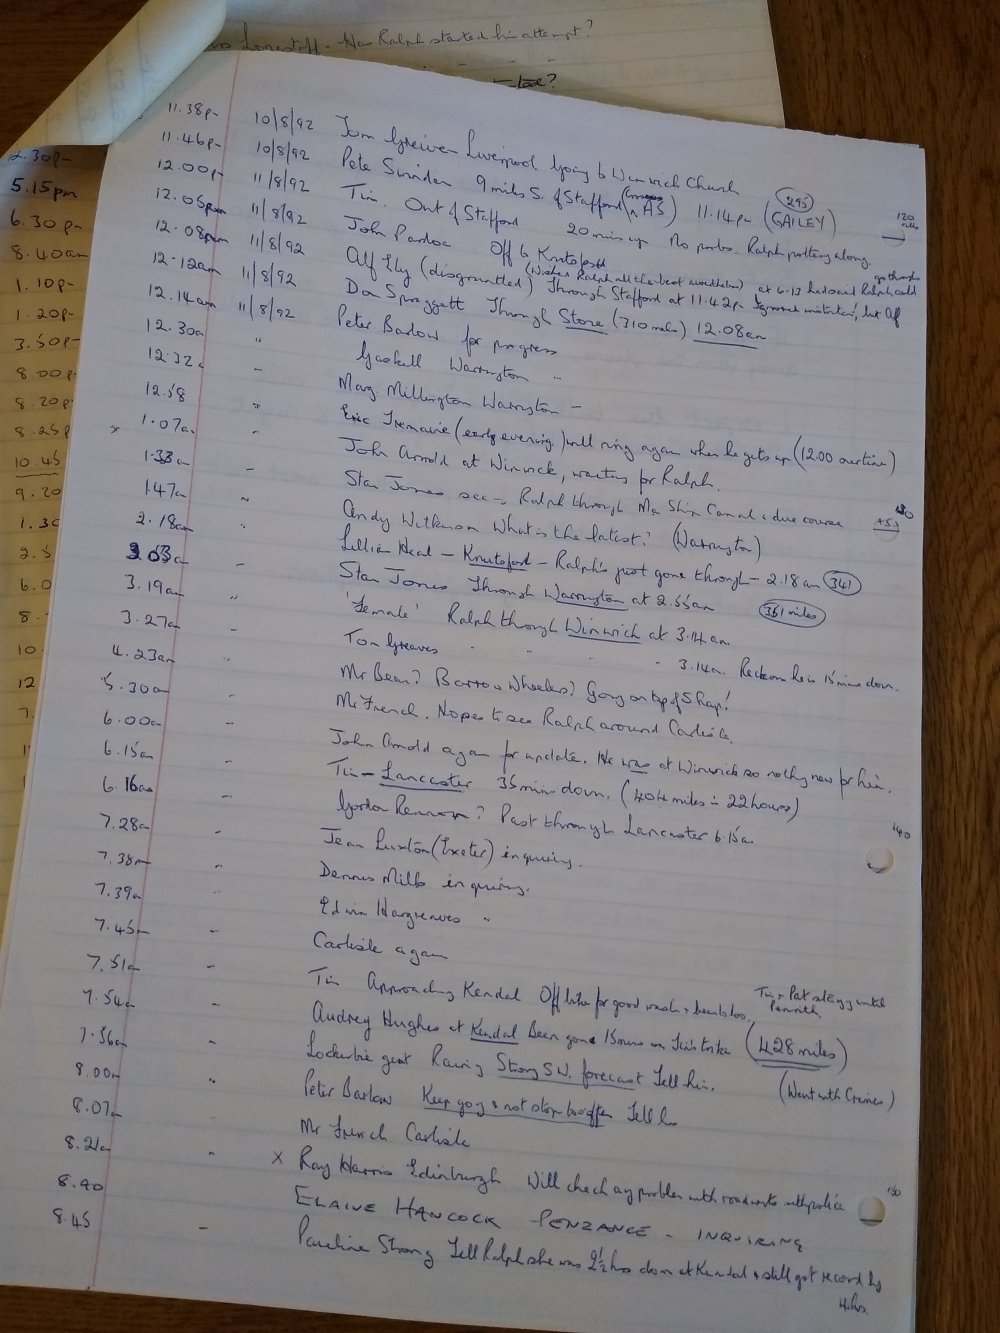 Has Ralph started his attempt?
11.38p 10/8/92 Tom Greive Liverpool. Going to Winwick Church
11.46p 10/8/92 Pete Swinden 9 miles S. of Stafford (in AS) 11.14pm (GAILEY) 295
12.00p 11/8/92 Tim. Out of Stafford 20 mins up No probs. Ralph pottering along 120
12.05pm 11/8/92 John Pardoe Off to Knutsford
(Wishes Ralph all the best nonetheless) at 6.13 had said Ralph could
12.08pm 11/8/92 Alf Ely (disgruntled) Through Stafford at 11.42pm
12.12am 11/8/92 Don Spraggett Through Stone (310 miles) 12.08am
12.14am 11/8/92 Peter Barlow for progress
12.30a " Gaskell Warrington -
12.32 - Marg Millington Warrington -
12.58 " Eric Tremaine (early evening) will ring again when he gets up (12.00 overtime)
x 1.07a - John Arnold at Winwick, waiting for Ralph.
1.33a - Stan Jones Ralph through Man Ship Canal due course
1.47a " Andy Wilkinson What is the latest? (Warrington)
2.18am " Lillian Heal - Knutsford - Ralph's just gone through - 2.18am 341
3.03a - Stan Jones Through Warrington at 2.55am 361 miles
3.19am " 'Female' Ralph through Winwick at 3.14am
3.27a - Tom Greaves - - - - 3.14a. Reckons he is 15 mins down.
4.23am " Mr Bean? Barrow Wheelers? Going on top of Shap!
5.30a - Mr French. Hopes to see Ralph around Carlisle.
6.00a " John Arnold again for update. He was at Winwick so nothing new for him.
6.15am - Tim - Lancaster 35 mins down. (404 miles in 22 hours)
6.16am - Gordon Past through Lancaster 6.15a. 140
7.28a " Jean Luxton (Exeter) inquiring.
7.38a " Dennis Mills inquiring.
7.39a " Edwin Hargreaves "
7.45 - Carlisle again
7.51a - Tim Approaching Kendal Off bike for good wash
Tim + Pat staying until
Penrith
7.54a Audrey Hughes at Kendal Been gone 15 mins (428 miles)
7.56am " Lockerbie Raining Strong SW. forecast Tell him. (Went with Crimes)
8.00a " Peter Barlow Keep going & not stop too often Tell
8.07 Mr French Carlisle
8.21a " x Ray Harris Edinburgh Will check any problem with roadworks with police 150
8.40 ELAINE HANCOCK - PENZANCE - INQUIRING
8.45 - Pauline Strong Tell Ralph she was 2½ hrs down at Kendal & still got record by
4 hrs.
12.30p
5.15pm
6.30pm
8.40am
1.10p
1.20p
3.50p
8.00p
8.20p
8.25p
10.45
9.20